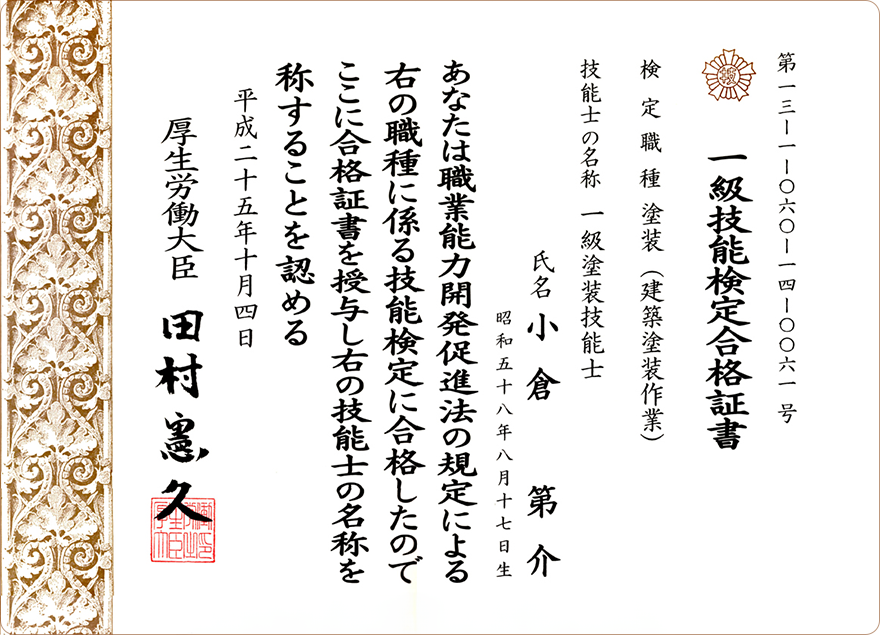 第一三ー一ー〇六〇ー一四ー〇〇六一号
一級技能検定合格証書
検定職種 塗装（建築塗装作業）
技能士の名称 一級塗装技能士
氏名 小倉 第介
昭和五十八年八月十七日生
あなたは職業能力開発促進法の規定による
右の職種に係る技能検定に合格したので
ここに合格証書を授与し右の技能士の名称を
称することを認める
平成二十五年十月四日
厚生労働大臣 田村憲久